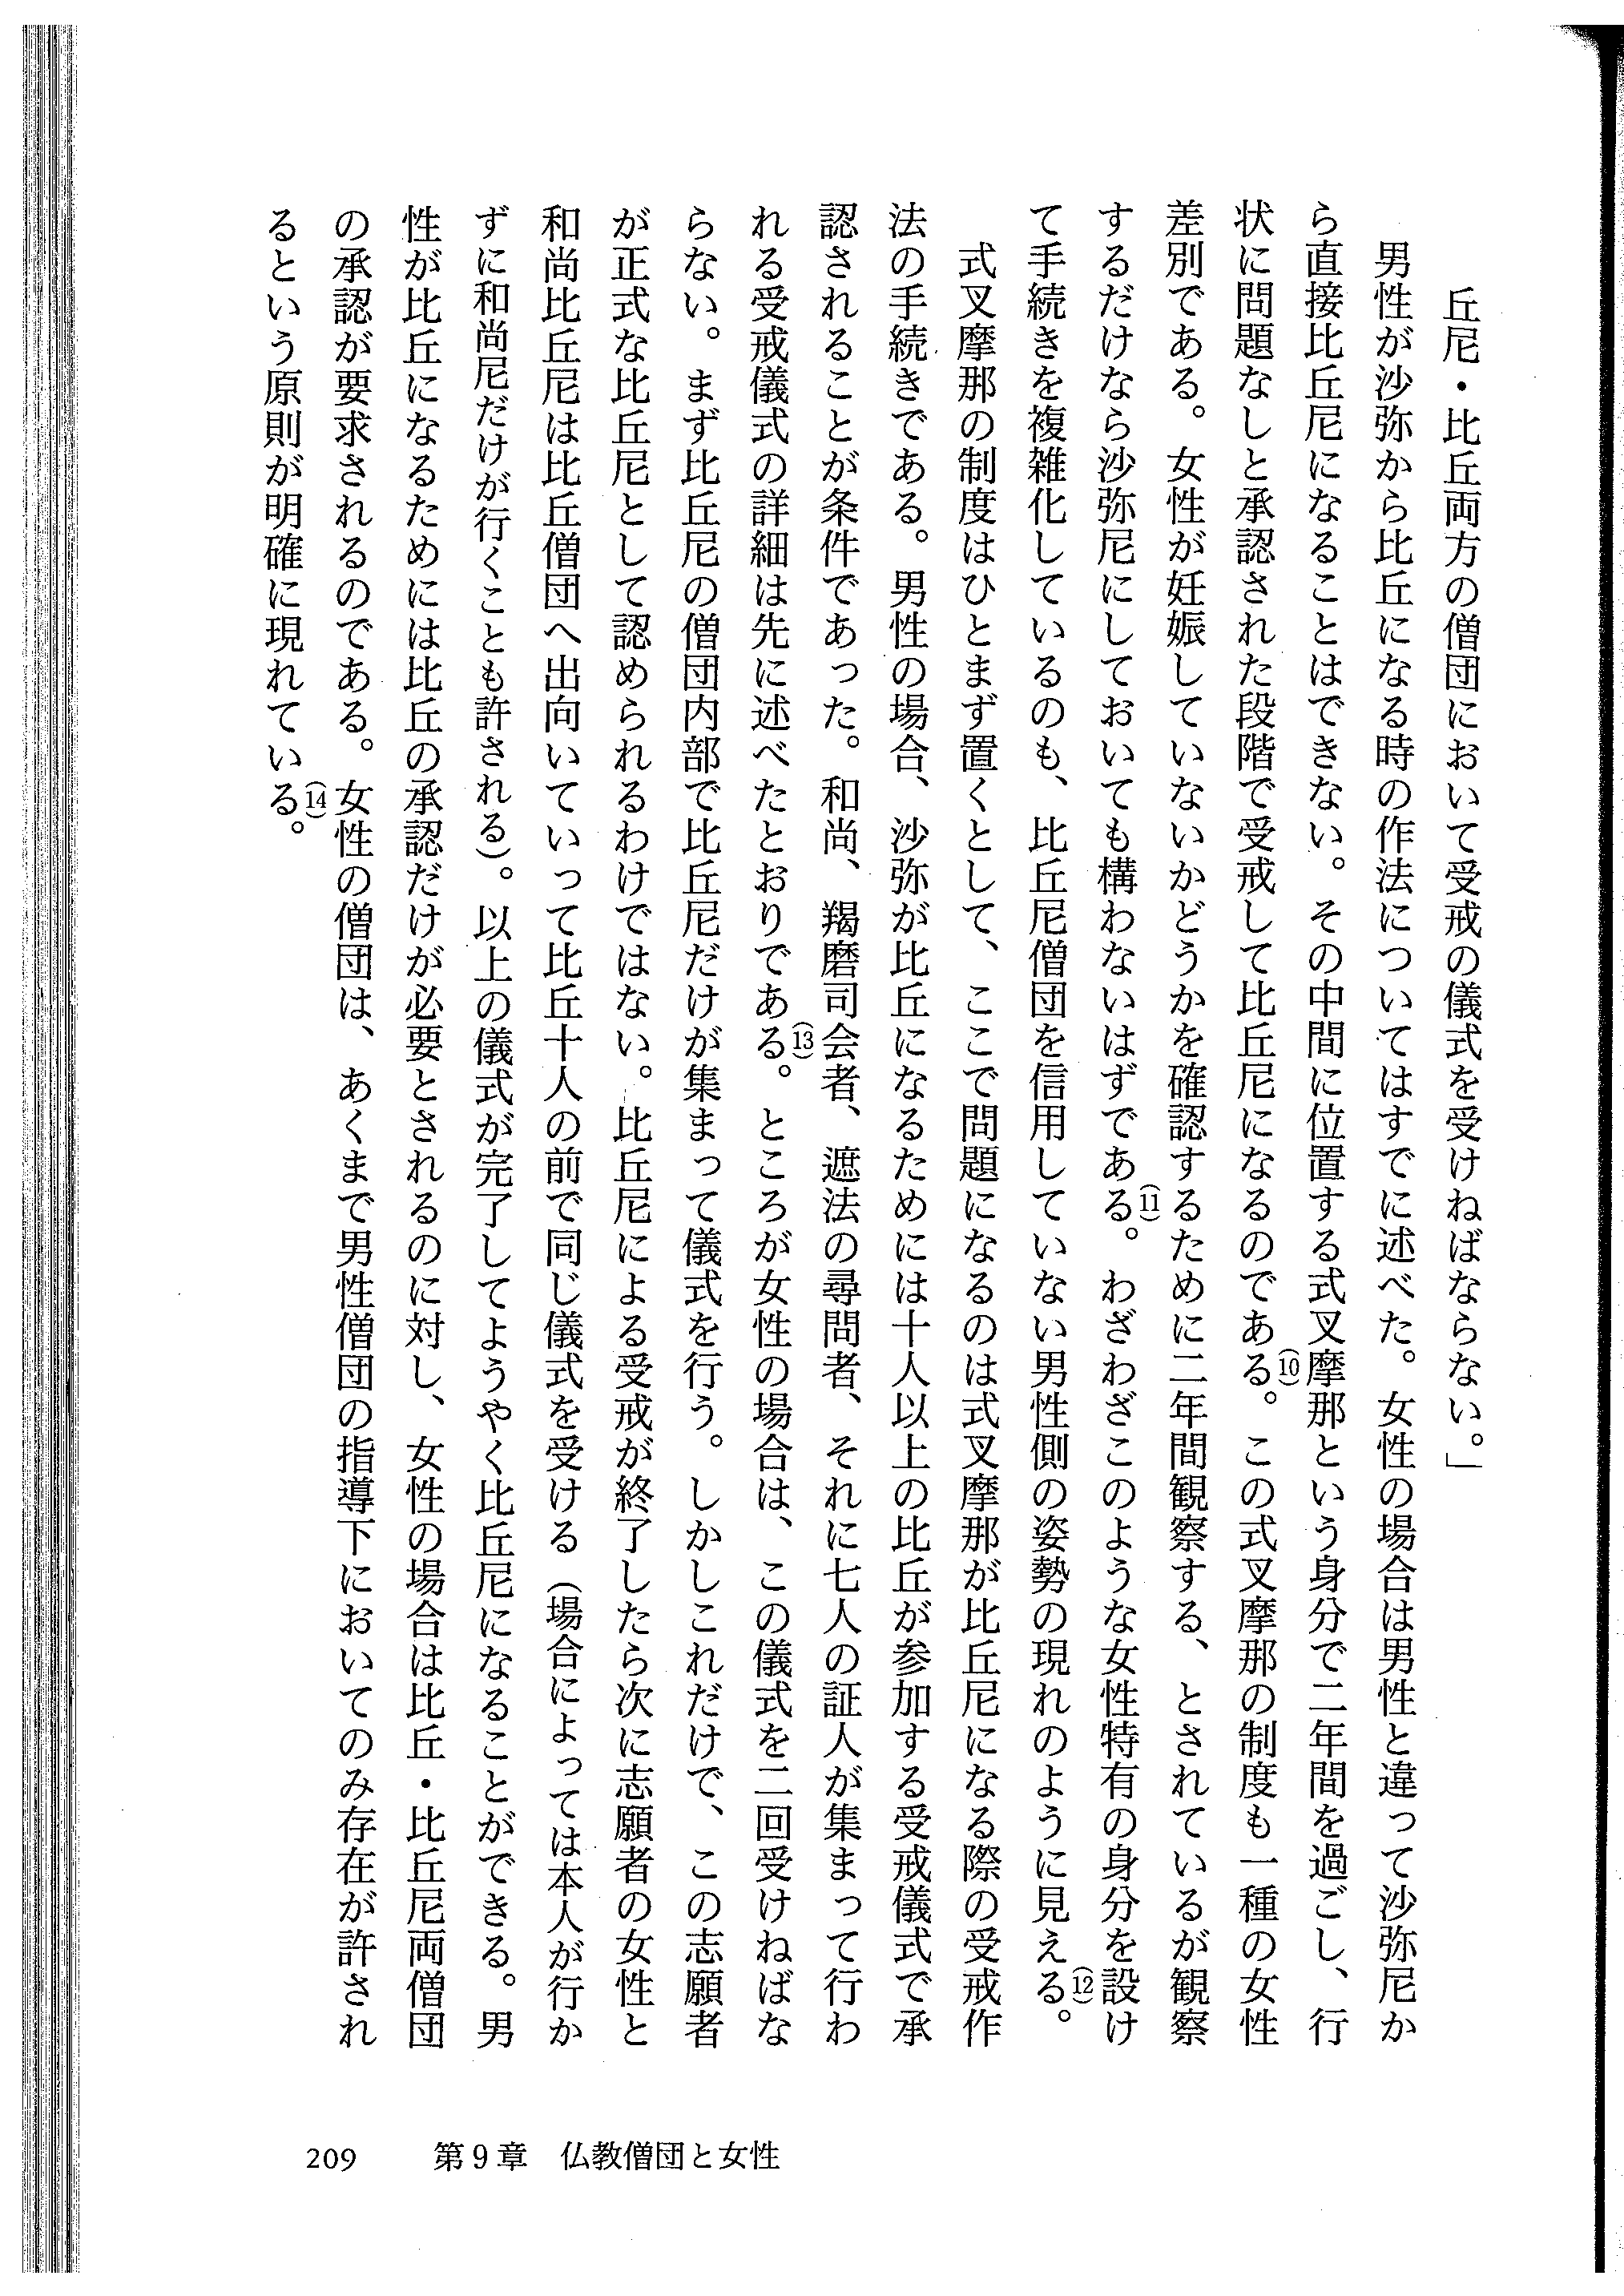 丘尼・比丘両方の僧団において受戒の儀式を受けねばならない。」
男性が沙弥から比丘になる時の作法についてはすでに述べた。女性の場合は男性と違って沙弥尼か
ら直接比丘尼になることはできない。その中間に位置する式叉摩那という身分で二年間を過ごし、行
状に問題なしと承認された段階で受戒して比丘尼になるのである(10)。この式叉摩那の制度も一種の女性
差別である。女性が妊娠していないかどうかを確認するために二年間観察する、とされているが観察
するだけなら沙弥尼にしておいても構わないはずである(11)。わざわざこのような女性特有の身分を設け
て手続きを複雑化しているのも、比丘尼僧団を信用していない男性側の姿勢の現れのように見える(12)。
式叉摩那の制度はひとまず置くとして、ここで問題になるのは式叉摩那が比丘尼になる際の受戒作
法の手続きである。男性の場合、沙弥が比丘になるためには十人以上の比丘が参加する受戒儀式で承
認されることが条件であった。和尚、羯磨司会者、遮法の尋問者、それに七人の証人が集まって行わ
れる受戒儀式の詳細は先に述べたとおりである(13)。ところが女性の場合は、この儀式を二回受けねばな
らない。まず比丘尼の僧団内部で比丘尼だけが集まって儀式を行う。しかしこれだけで、この志願者
が正式な比丘尼として認められるわけではない。比丘尼による受戒が終了したら次に志願者の女性と
和尚比丘尼は比丘僧団へ出向いていって比丘十人の前で同じ儀式を受ける（場合によっては本人が行か
ずに和尚尼だけが行くことも許される）。以上の儀式が完了してようやく比丘尼になることができる。男
性が比丘になるためには比丘の承認だけが必要とされるのに対し、女性の場合は比丘・比丘尼両僧団
の承認が要求されるのである。女性の僧団は、あくまで男性僧団の指導下においてのみ存在が許され
るという原則が明確に現れている(14)。
209　第9章　仏教僧団と女性